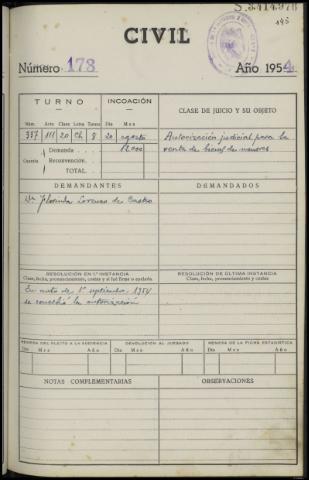 S.2414.978
145
CIVIL
Número 178 Año 1954
TURNO INCOACIÓN CLASE DE JUICIO Y SU OBJETO
Núm. Arts. Clase Letra Turno Día Mes
337 111 20 Ch 8 20 agosto Autorización judicial para la
Demanda venta de bienes de menores
Cuantía Reconvención.
TOTAL
DEMANDANTES DEMANDADOS
Dª Florinda Lorenzo de Castro
RESOLUCIÓN EN 1.ª INSTANCIA RESOLUCIÓN DE ÚLTIMA INSTANCIA
Clase, fecha, pronunciamiento, costas y si fué firme o apelada Clase, fecha, pronunciamiento y costas
En auto de 1º septiembre 1954
se concedió la autorización
REMESA DEL PLEITO A LA AUDIENCIA DEVOLUCIÓN AL JUZGADO REMESA DE LA FICHA ESTADÍSTICA
Día Mes Año Día Mes Año Día Mes Año
NOTAS COMPLEMENTARIAS OBSERVACIONES